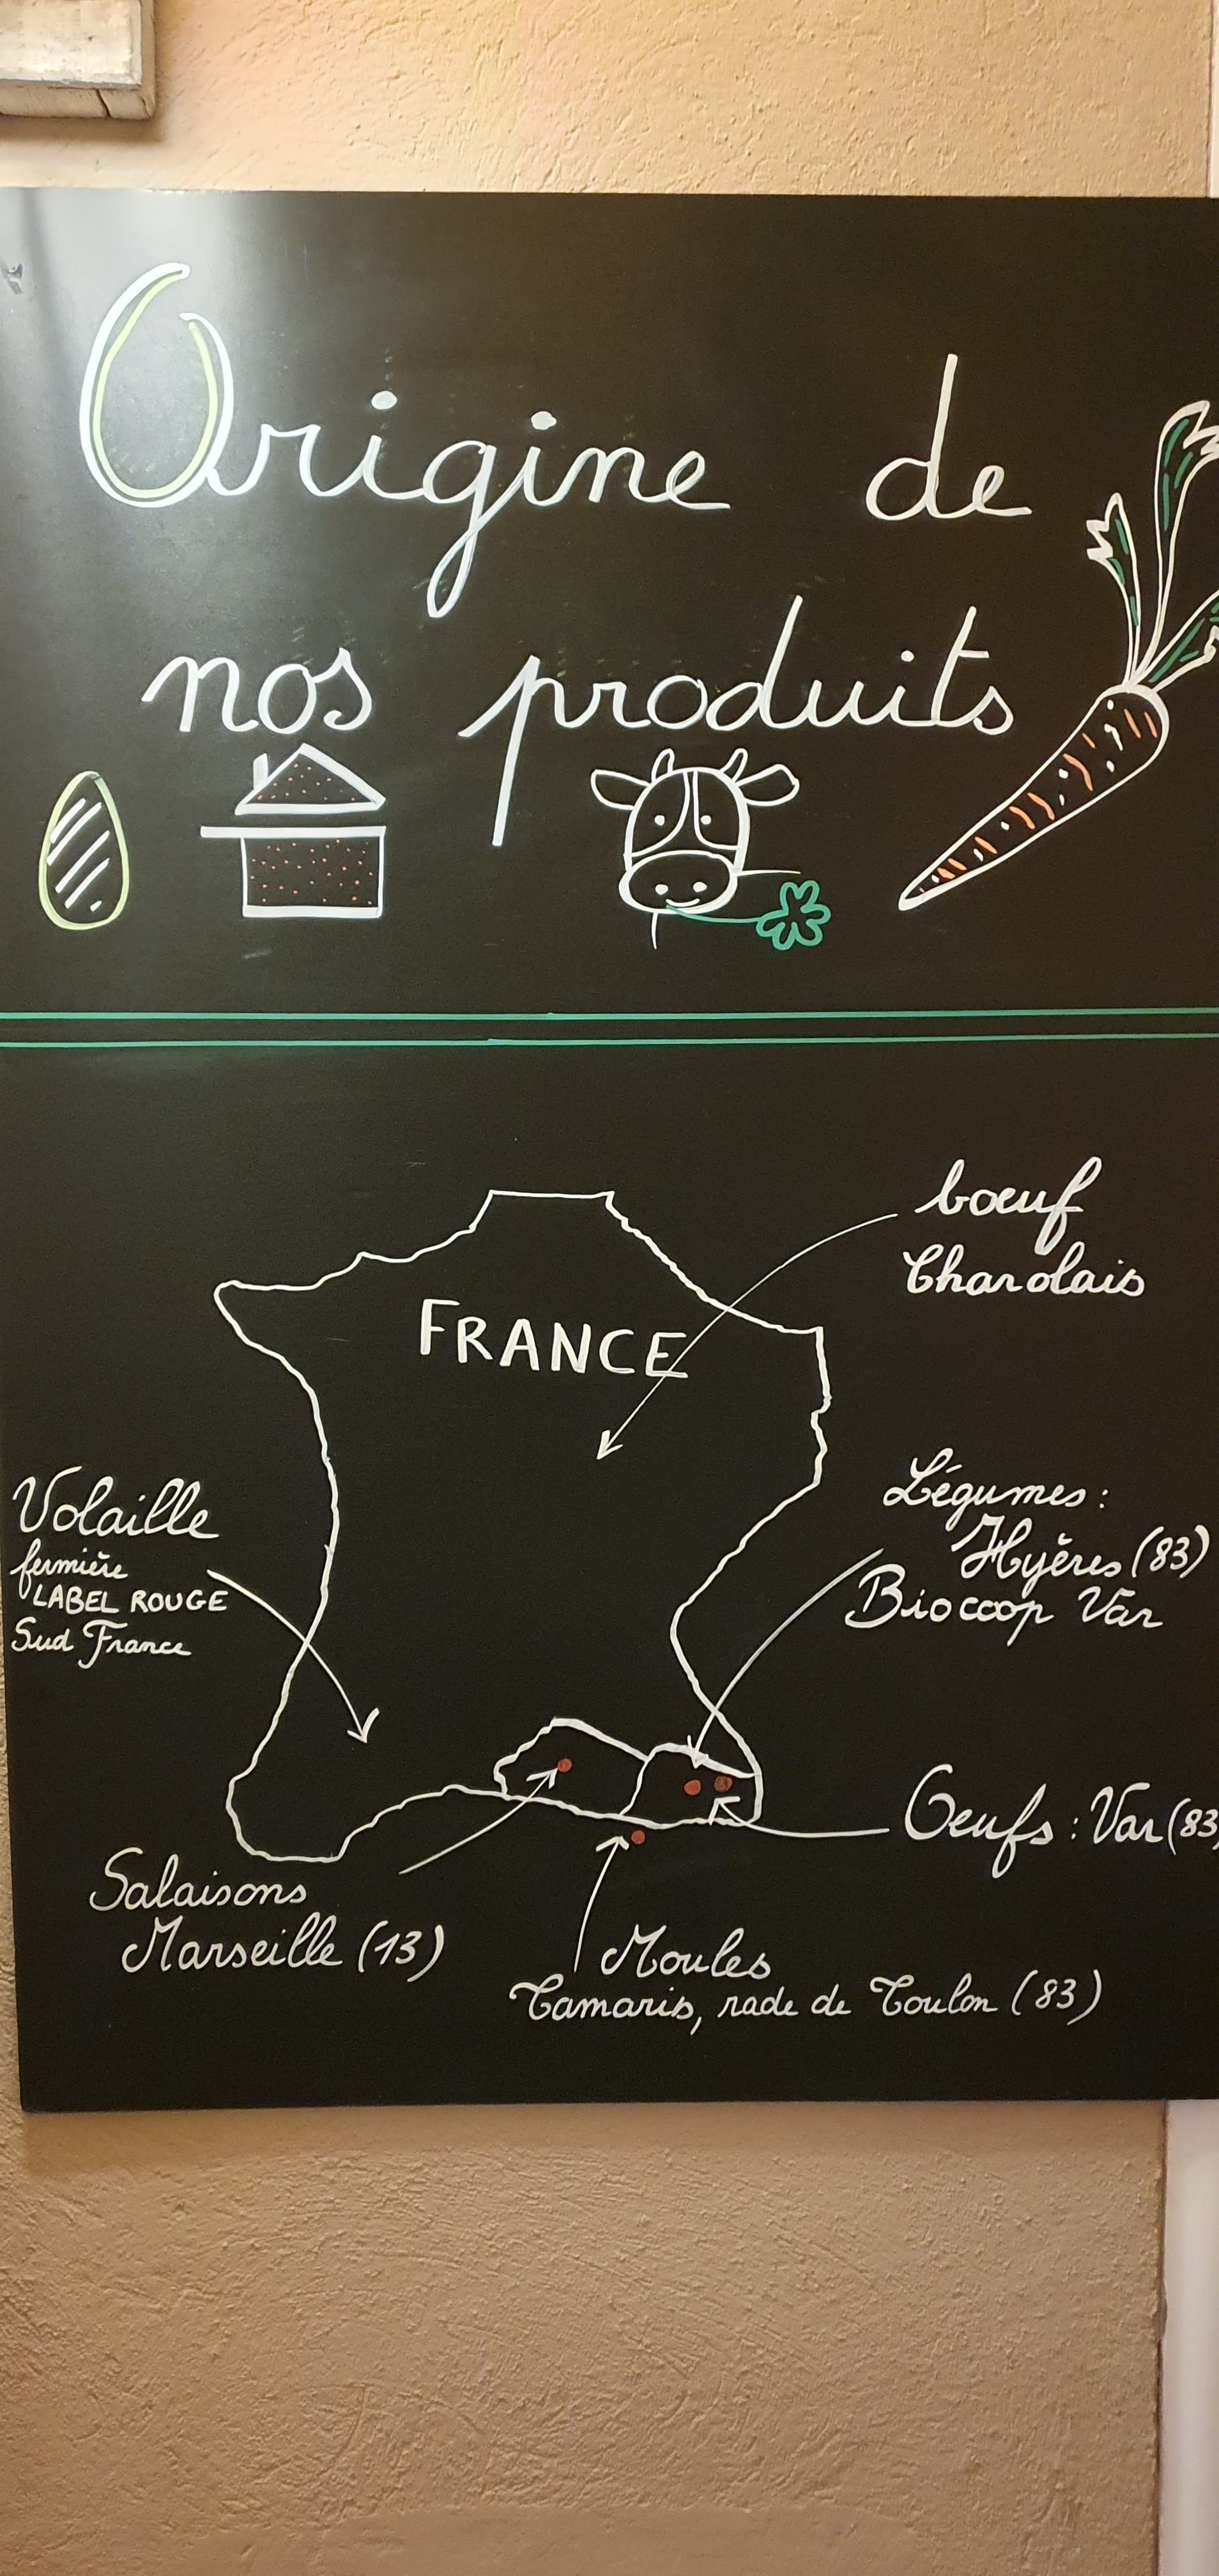 Origine de
nos produits
FRANCE
bœuf
Charolais
Volaille
fermière
LABEL ROUGE
Sud France
Légumes :
Hyères (83)
Biocoop Var
Oeufs : Var (83)
Salaisons
Marseille (13)
Moules
Tamaris, rade de Toulon (83)